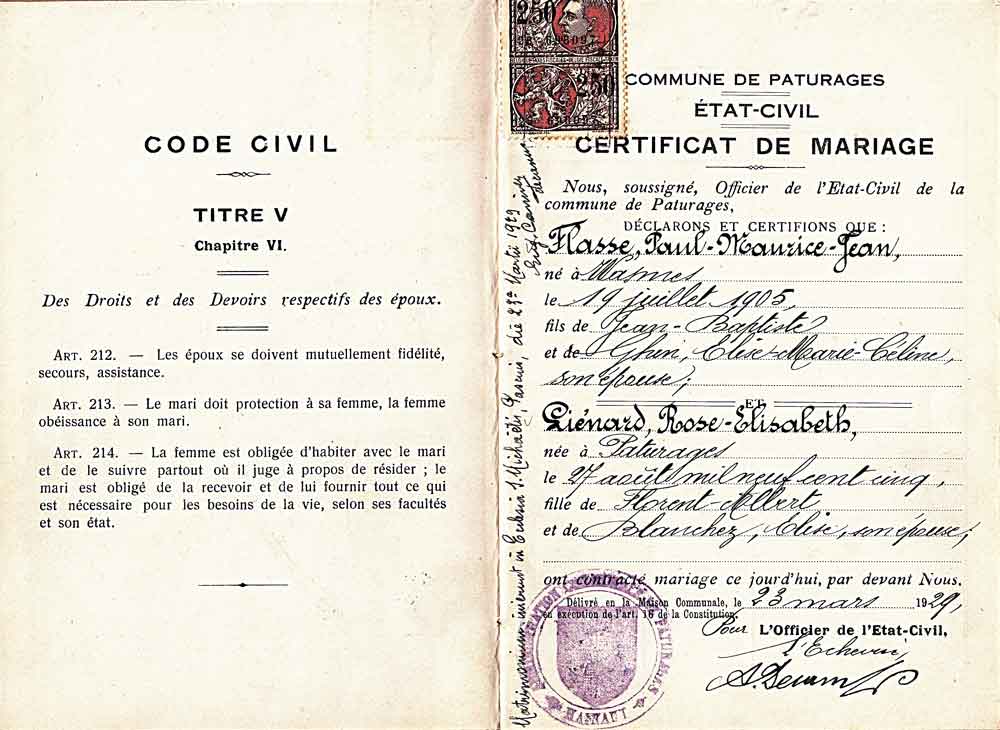 CODE CIVIL
TITRE V
Chapitre VI.
Des Droits et des Devoirs respectifs des époux.
ART. 212. — Les époux se doivent mutuellement fidélité,
secours, assistance.
ART. 213. — Le mari doit protection à sa femme, la femme
obéissance à son mari.
ART. 214. — La femme est obligée d'habiter avec le mari
et de le suivre partout où il juge à propos de résider ; le
mari est obligé de la recevoir et de lui fournir tout ce qui
est nécessaire pour les besoins de la vie, selon ses facultés
et son état.
250
250
Matrimonium inierunt in Ecclesia S. Michaëlis, die 23a Martii 1929
COMMUNE DE PATURAGES
ÉTAT-CIVIL
CERTIFICAT DE MARIAGE
Nous, soussigné, Officier de l'Etat-Civil de la
commune de Paturages,
DÉCLARONS ET CERTIFIONS QUE :
Flasse, Paul-Maurice-Jean,
né à Wasmes
le 19 juillet 1905,
fils de Jean-Baptiste
et de Ghin, Elise-Marie-Céline,
son épouse;
ET
Liénard, Rose-Elisabeth,
née à Paturages
le 27 août mil neuf cent cinq,
fille de Florent-Albert
et de Blanchez, Elise, son épouse;
ont contracté mariage ce jourd'hui, par devant Nous.
Délivré en la Maison Communale, le 23 mars 1929,
en exécution de l'art. 16 de la Constitution.
Pour L'Officier de l'Etat-Civil,
l'Echevin,
ADMINISTRATION COMMUNALE DE PATURAGES
HAINAUT